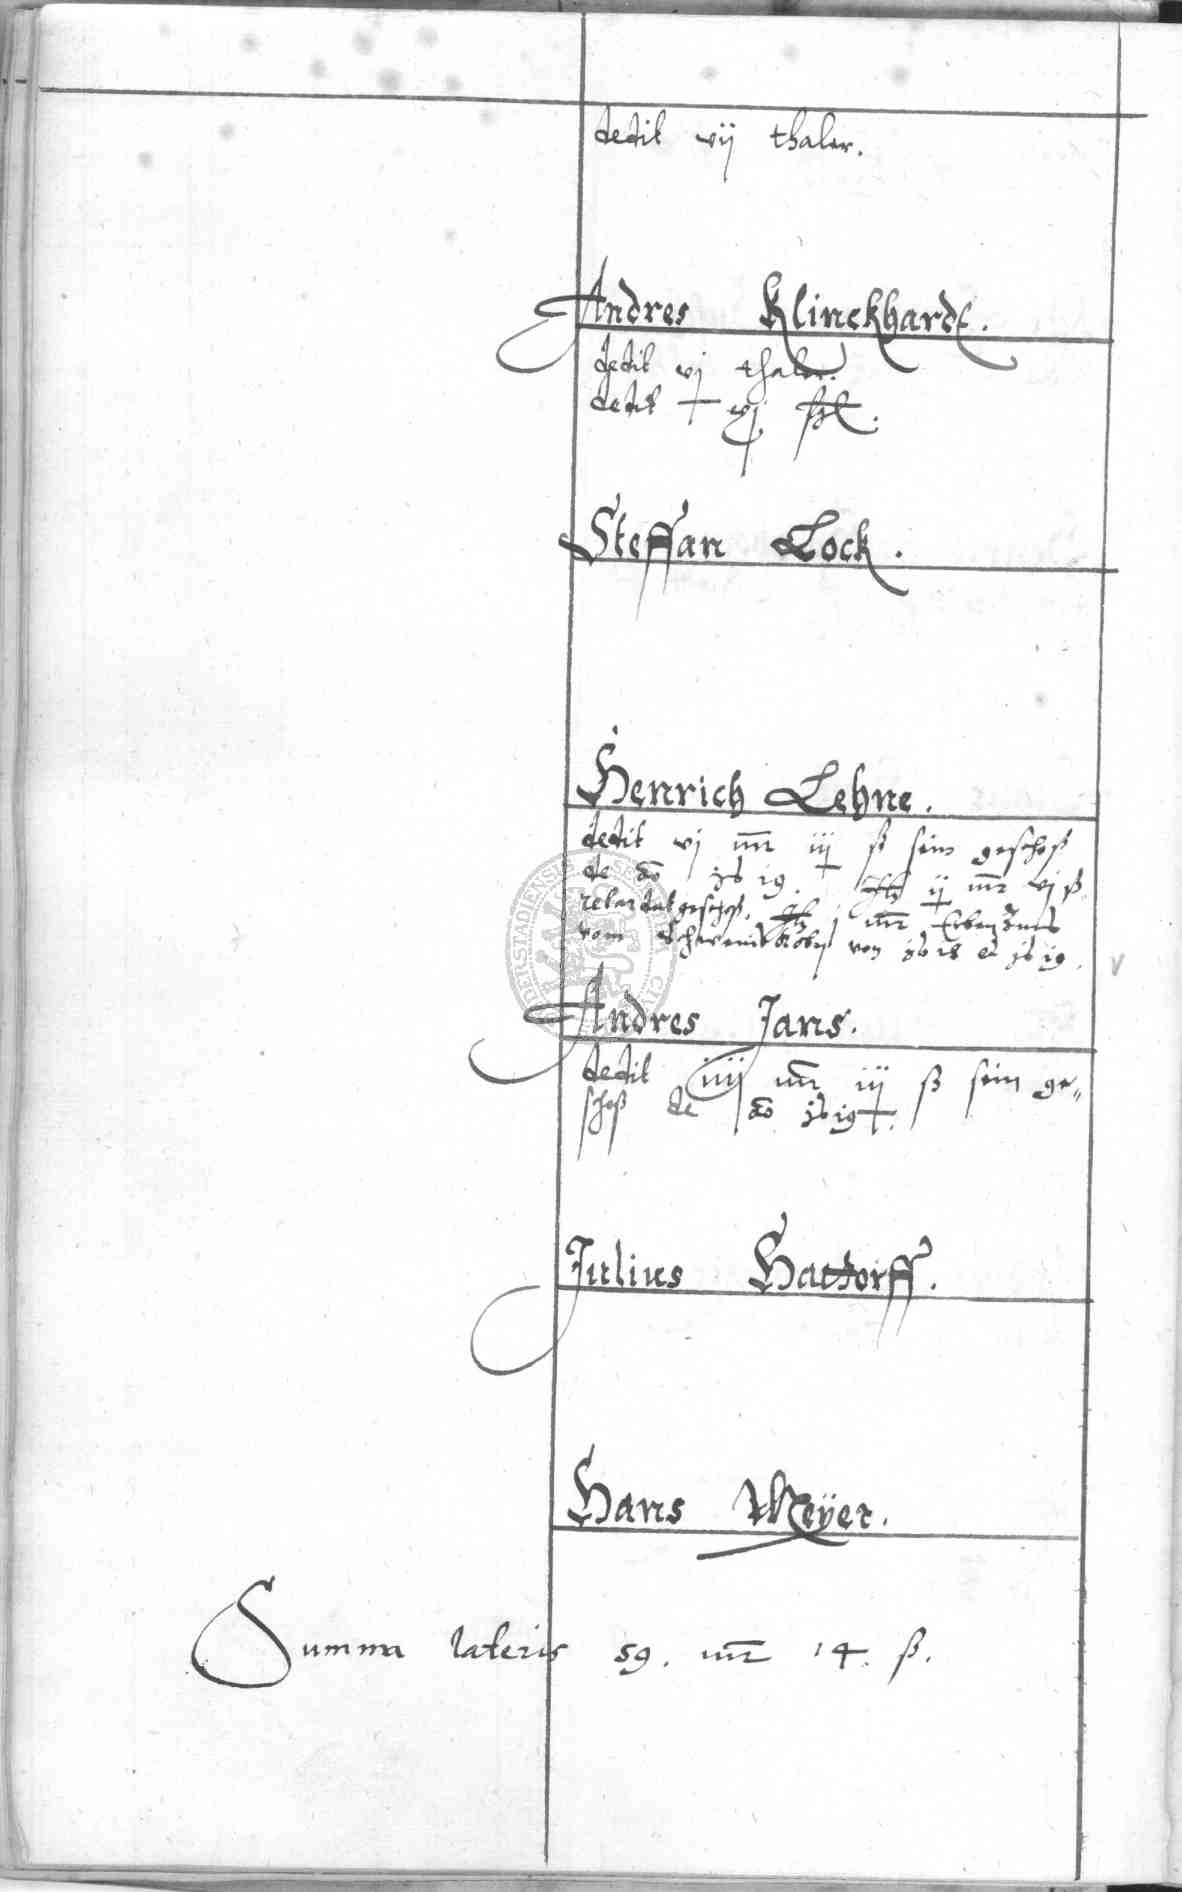 dedit vij thaler.
Andres Klinckhardt.
dedit vj thaler.
dedit vj
Steffan Lock.
Henrich Lehne.
dedit vj mr iij ß sein geschoß
de ao 19. ij mr vj ß
geschoß. j mr Erben Zinß
vom von
Andres Jans.
dedit iiij mr iij ß sein ge-
schoß de ao
Julius Hattorff.
Hans Meÿer.
Summa lateris 59. mr 14. ß.